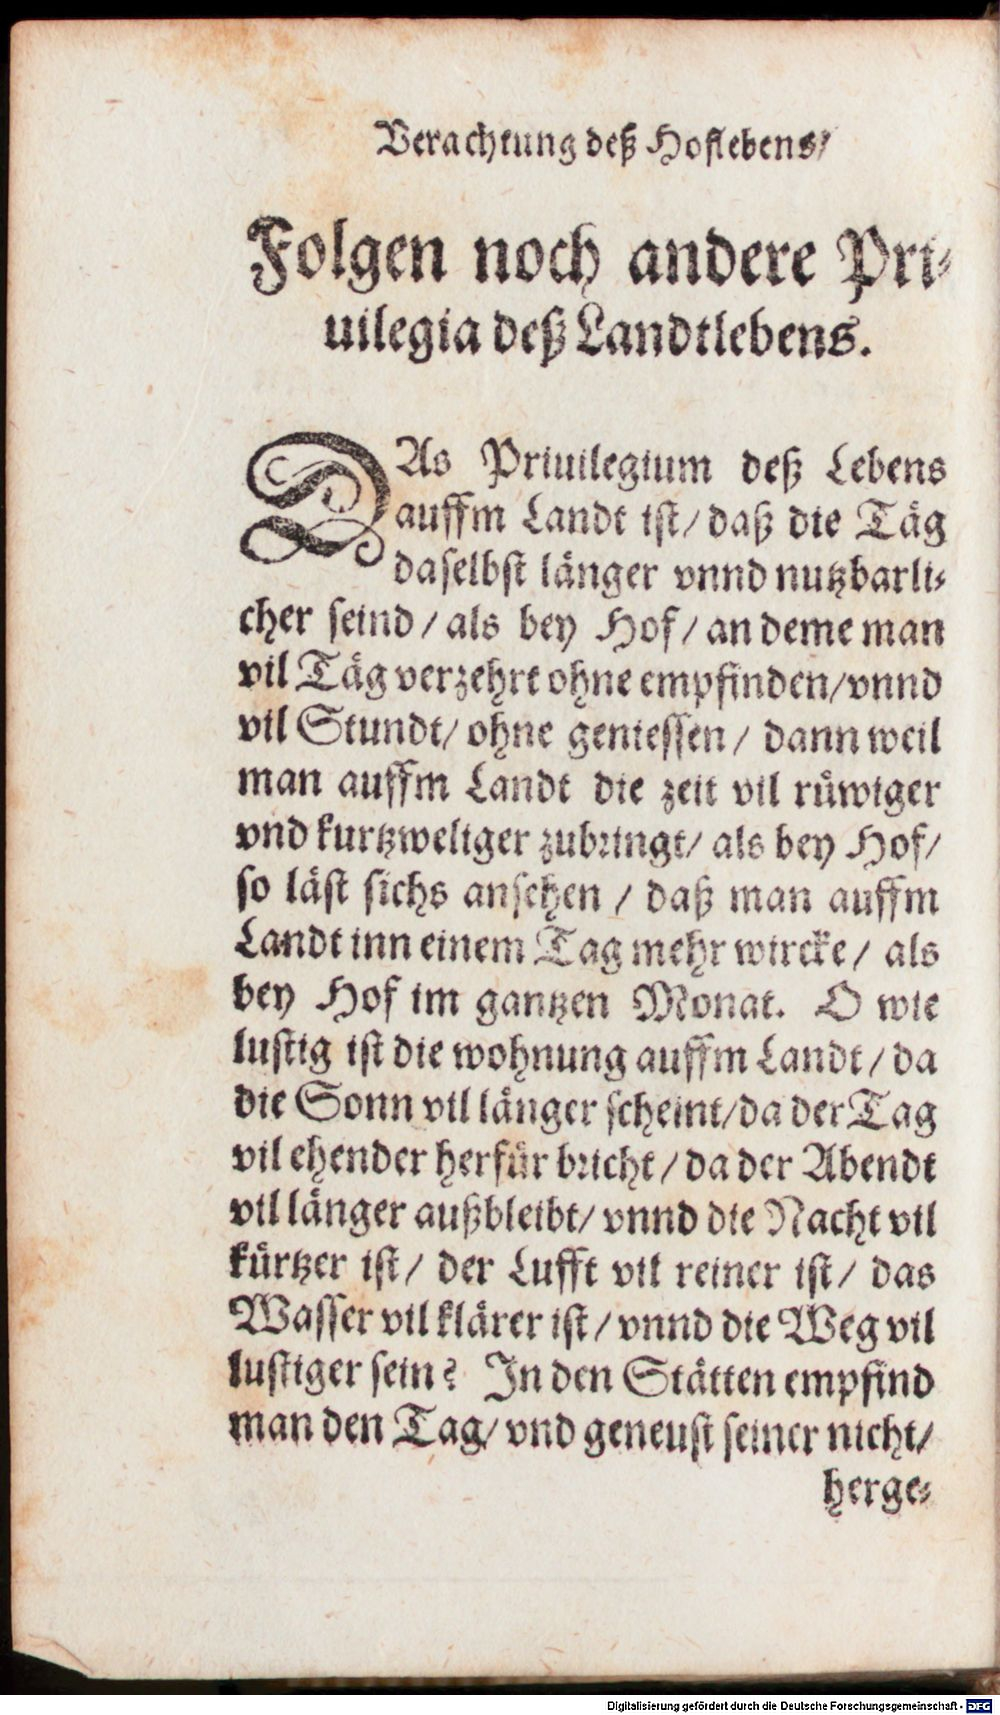 Verachtung deß Hoflebens/
Folgen noch andere Pri-
uilegia deß Landtlebens.
DAs Priuilegium deß Lebens
auffm Landt ist/ daß die Täg
daselbst länger vnnd nutzbarli-
cher seind / als bey Hof / an deme man
vil Täg verzehrt ohne empfinden/vnnd
vil Stundt/ ohne geniessen / dann weil
man auffm Landt die zeit vil rüwiger
vnd kurtzweliger zubringt/ als bey Hof/
so läst sichs ansehen / daß man auffm
Landt inn einem Tag mehr wircke / als
bey Hof im gantzen Monat. O wie
lustig ist die wohnung auffm Landt / da
die Sonn vil länger scheint/da der Tag
vil ehender herfür bricht / da der Abendt
vil länger außbleibt/ vnnd die Nacht vil
kürtzer ist/ der Lufft vil reiner ist/ das
Wasser vil klärer ist / vnnd die Weg vil
lustiger sein? In den Stätten empfind
man den Tag/ vnd geneust seiner nicht/
herge-
Digitalisierung gefördert durch die Deutsche Forschungsgemeinschaft - DFG